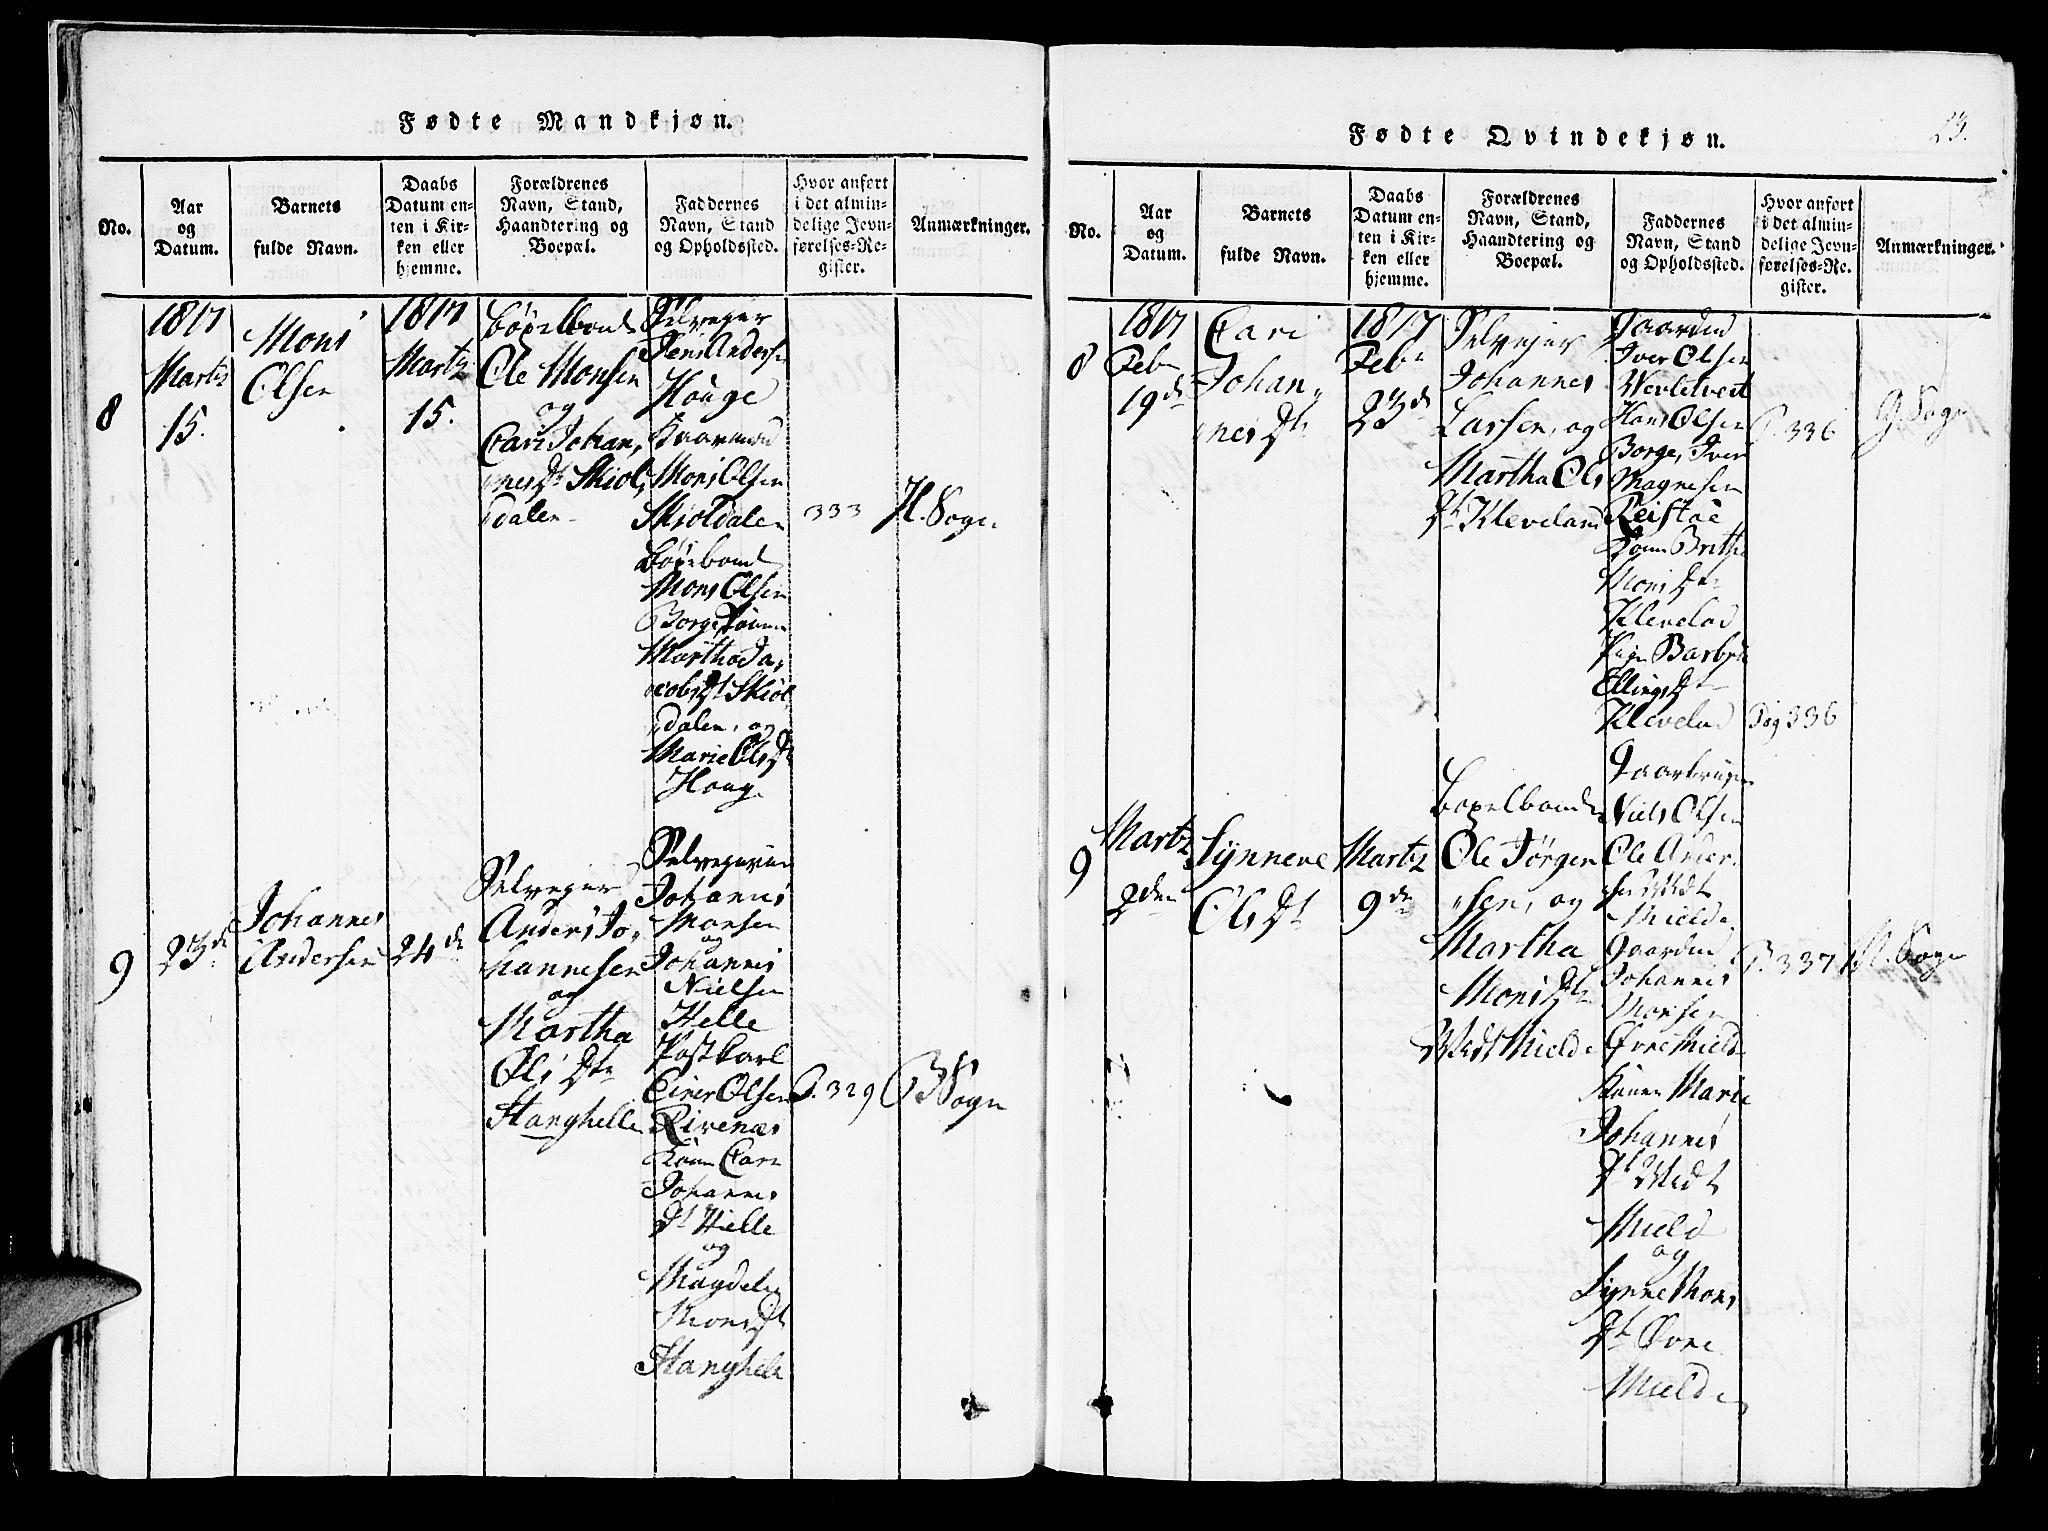 Fødte Mandkjøn.
No.
Aar
og
Datum.
Barnets
fulde Navn.
Daabs
Datum en-
ten i Kir-
ken eller
hjemme.
Forældrenes
Navn, Stand,
Haandtering og
Boepæl.
Faddernes
Navn, Stand
og Opholdssted.
Hvor anført
i det almin-
delige Jevn-
førelses-Re-
gister.
Anmærkninger.
8
1817
Martz
15.
Mons
Olsen
1817
Martz
15.
Ole Monsen
og
Cari Johan,
nes Dt Skiol,
dalen
Selveyer
Jens Andersen
Houge
Mons Olsen
Skioldalen
Mons Olsen
Borge
Martha Ja,
cobs Dt Skiol,
dalen, og
Marie Ols Dt
Houg
333
H. Sogn
9
23de
Johannes
Andersen
24de
Selveyer
Anders Jo,
hannesen
og
Martha
Ols Dtr
Stanghelle
Johannes
Monsen
og
Johannes
Nielsen
Helle
Postkarl
Einer Olsen
Rivenæs
Kone Cari
Johannes
Dt Helle
og
Magdele
Mons Dt
Stanghele
P. 329
B Sogn
Fødte Qvindekjøn.
23.
No.
Aar
og
Datum.
Barnets
fulde Navn.
Daabs
Datum en-
ten i Kir-
ken eller
hjemme.
Forældrenes
Navn, Stand,
Haandtering og
Boepæl.
Faddernes
Navn, Stand
og Opholdssted.
Hvor anført
i det almin-
delige Jevn-
førelses-Re-
gister.
Anmærkninger.
8
1817
Feb
19de
Cari
Johan,
nes Dt
1817
Feb
23de
Selvejer
Johannes
Larsen, og
Martha Ols
Dt Kleveland
Iver Olsen
Hans Olsen
Borge, Iver
Magnesen
Reistae
Kone Brithe
Mons Dtr
Klevelad
Pige Barbra
Ellings Dtr
Klevelad
P. 336
Pag 336
9
Martz
2den
Synneve
Ols Dt
Martz
9de
Ole Jørgen
sen, og
Martha
Mons Dtr
Midt Mielde
Niels Olsen
Ole Ander
sen Midt
Mielde
Johannes
Monsen
Øvre Mielde
Konen Marie
Johannes
Dt Midt
Mield
og
Synne Mons
Dt Øvre
Mielde
P. 337
H. Sogn